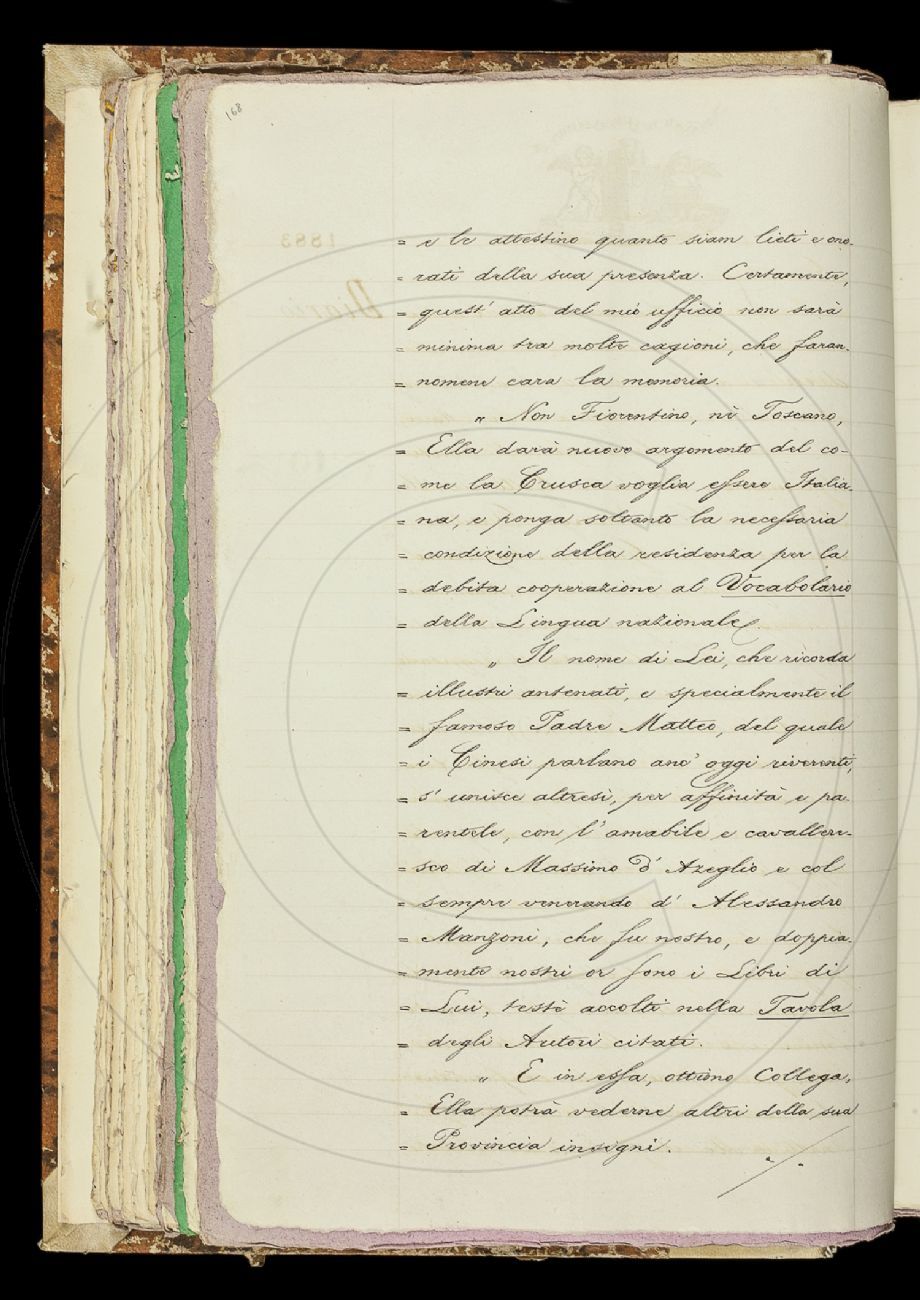 168
= e le attestino quanto siam lieti e ono-
= rati della sua presenza. Certamente,
= quest' atto del mio ufficio non sarà
= minima tra molte cagioni, che faran-
= nomene cara la memoria.
" Non Fiorentino, nè Toscano,
= Ella darà nuovo argomento del co-
= me la Crusca voglia essere Italia-
= na, e ponga soltanto la necessaria
= condizione della residenza per la
= debita cooperazione al Vocabolario
= della Lingua nazionale.
" Il nome di Lei, che ricorda
= illustri antenati, e specialmente il
= famoso Padre Matteo, del quale
= i Cinesi parlano anc' oggi riverenti,
= s' unisce altresì, per affinità e pa-
= rentele, con l' amabile e cavallere-
= sco di Massimo d' Azeglio e col
= sempre venerando d' Alessandro
= Manzoni, che fu nostro, e doppia-
= mente nostri or sono i Libri di
= Lui, testè accolti nella Tavola
= degli Autori citati.
" E in essa, ottimo Collega,
= Ella potrà vederne altri della sua
= Provincia insigni.